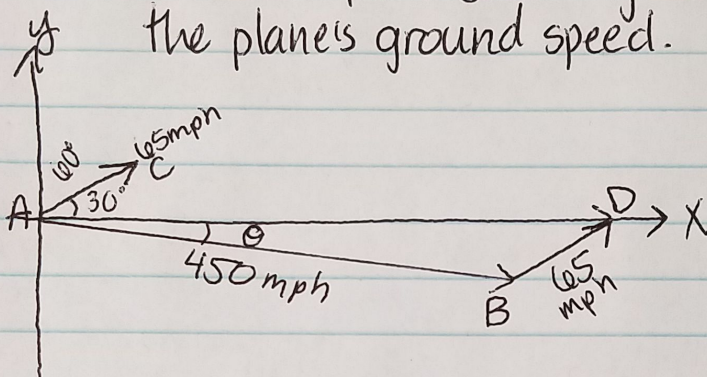 the plane's ground speed.
y
60°
65mph
C
A
30°
D
X
θ
450mph
65
mph
B